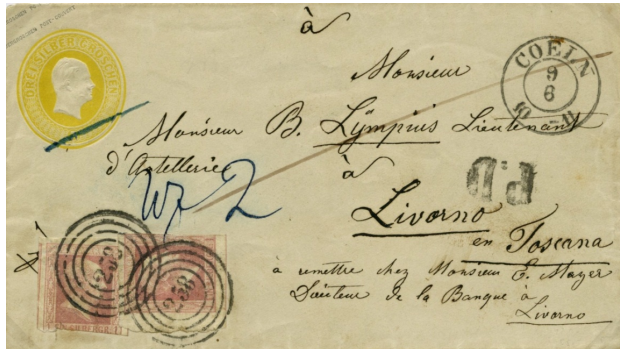 DREI SILBERGROSCHEN
à
Monsieur
COELN
9
6
Monsieur B. Lÿmpius Lieutenant
d'Artellerie
à
P.D
Wf 2
Livorno
en Toscana
à remettre chez Monsieur E. Mayer
Directeur de la Banque à
Livorno
238
238